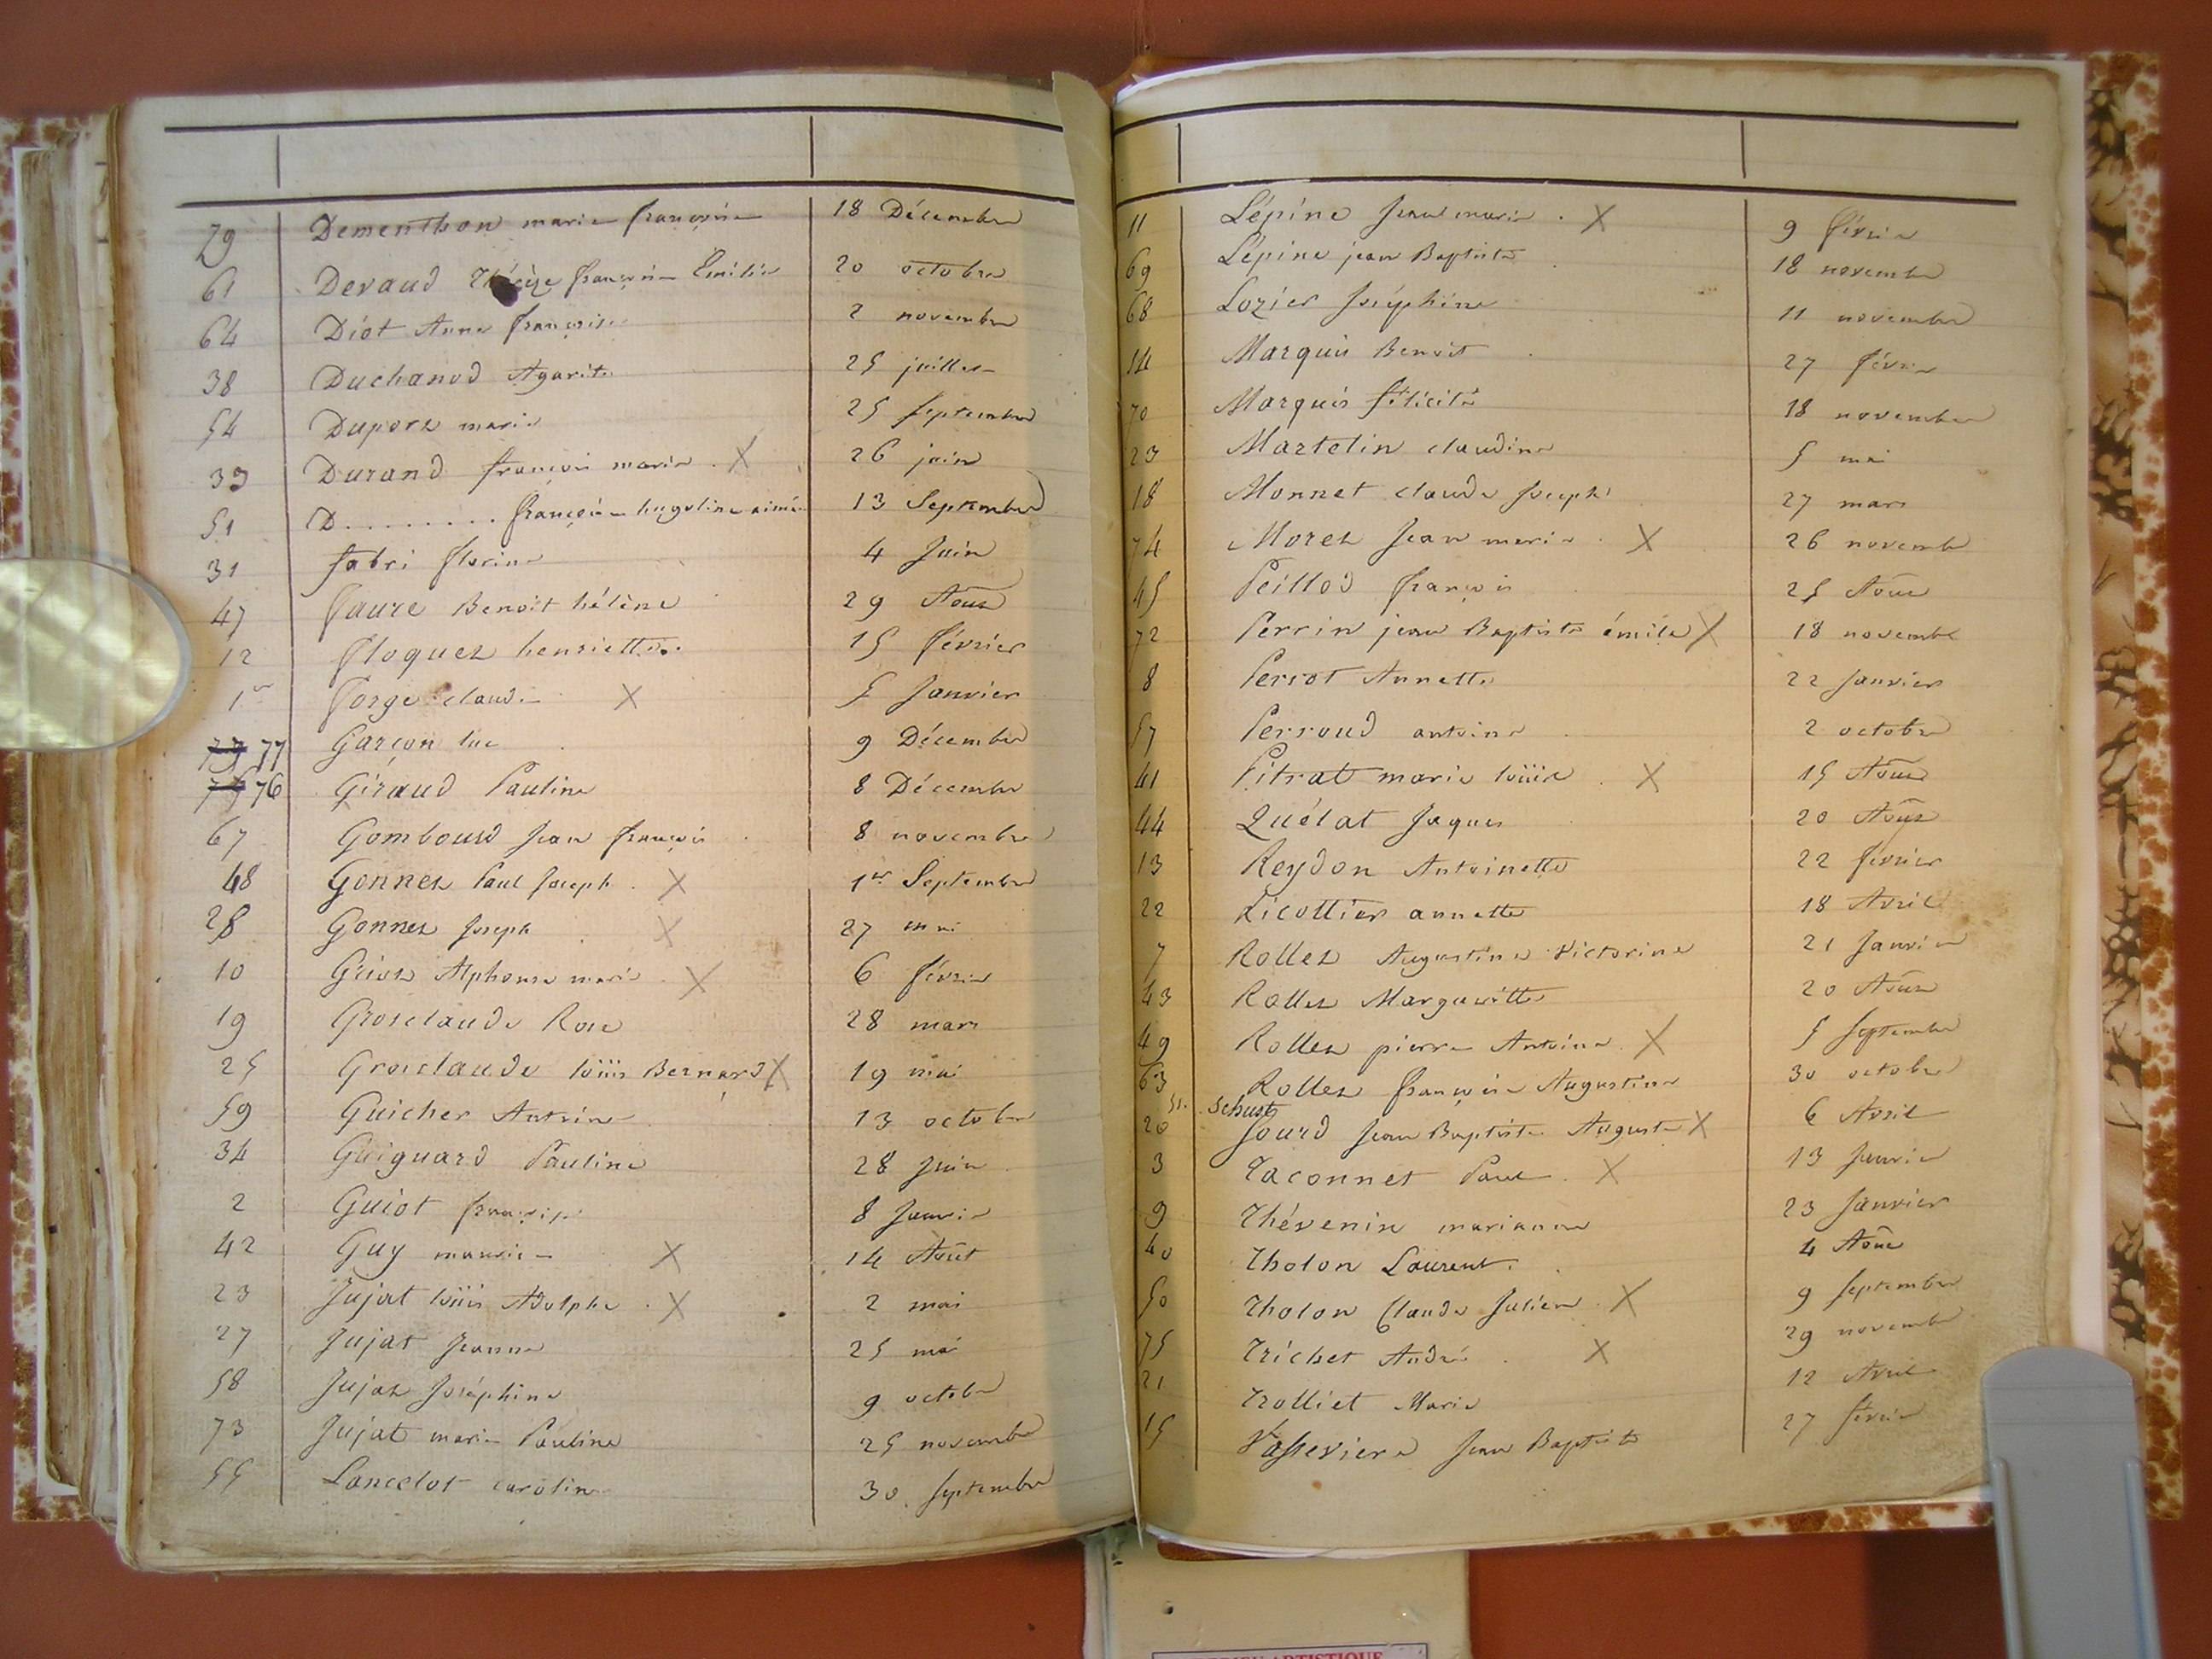 79 Dementhon marie françoise 18 Décembre
61 Devaud Thérèze françoise Emilie 20 octobre
64 Diot Anne françoise 2 novembre
38 Duchanod Agarite 25 juillet
54 Duport marie 25 Septembre
33 Durand françois marie X 26 juin
51 D......... françoise hugoline aimée 13 Septembre
31 fabri florine 4 Juin
47 Faure Benoit hélène 29 Août
12 Floquet henriette 15 février
1er Forge claude X 5 Janvier
77 Garçon luc 9 Décembre
76 Giraud Pauline 8 Décembre
67 Gomboud Jean françois 8 novembre
48 Gonnet Paul Joseph X 1er Septembre
28 Gonnet Joseph X 27 mai
10 Griot Alphonse marie X 6 février
19 Grosclaude Rose 28 mars
25 Grosclaude loüis Bernard X 19 mai
59 Guicher Antoine 13 octobre
34 Guiguard Pauline 28 Juin
2 Guiot 8 Janvier
42 Guy maurice X 14 Août
23 Jujat loüis Adolphe X 2 mai
27 Jujat Jeanne 25 mai
58 Jujat Joséphine 9 octobre
73 Jujat marie Pauline 25 novembre
55 Lancelot caroline 30 Septembre
11 Lépine Jean marie X 9 février
69 Lépine jean Baptiste 18 novembre
68 Lozier Joséphine 11 novembre
14 Marquis Benoit 27 février
70 Marquis félicité 18 novembre
23 Martelin claudine 5 mai
18 Monnet claude Joseph 27 mars
74 Moret Jean marie X 26 novembre
45 Peillod françois 25 Août
72 Perrin jean Baptiste émile X 18 novembre
8 Perrot Annette 22 Janvier
57 Perroud antoine 2 octobre
41 Pitrat marie loüise X 15 Août
44 Quélat Jaques 20 Août
13 Reydon Antoinette 22 février
22 Ricottier annette 18 Avril
7 Rollet Augustine Victorine 21 Janvier
43 Rollet Margueritte 20 Août
49 Rollet pierre Antoine X 5 Septembre
63 Rollet françoise Augustine 30 octobre
51. Schust
20 Jourd Jean Baptiste Auguste X 6 Avril
3 Taconnet Paul X 13 Janvier
9 Thévenin marianne 23 Janvier
40 Tholon Laurent 4 Août
50 Tholon Claude Julien X 9 Septembre
75 Trichet André X 29 novembre
21 Trolliet Marie 12 Avril
15 Vasseviere Jean Baptiste 27 février